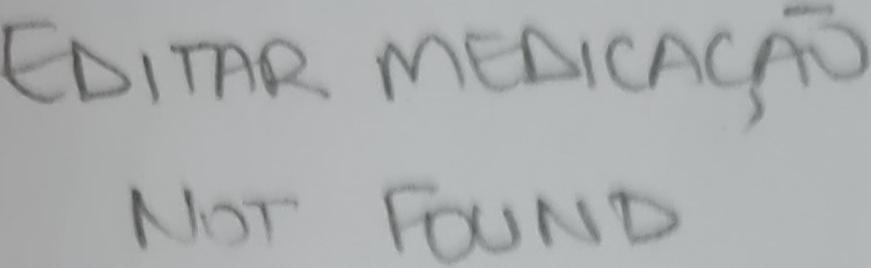 EDITAR MEDICAÇÃO
NOT FOUND